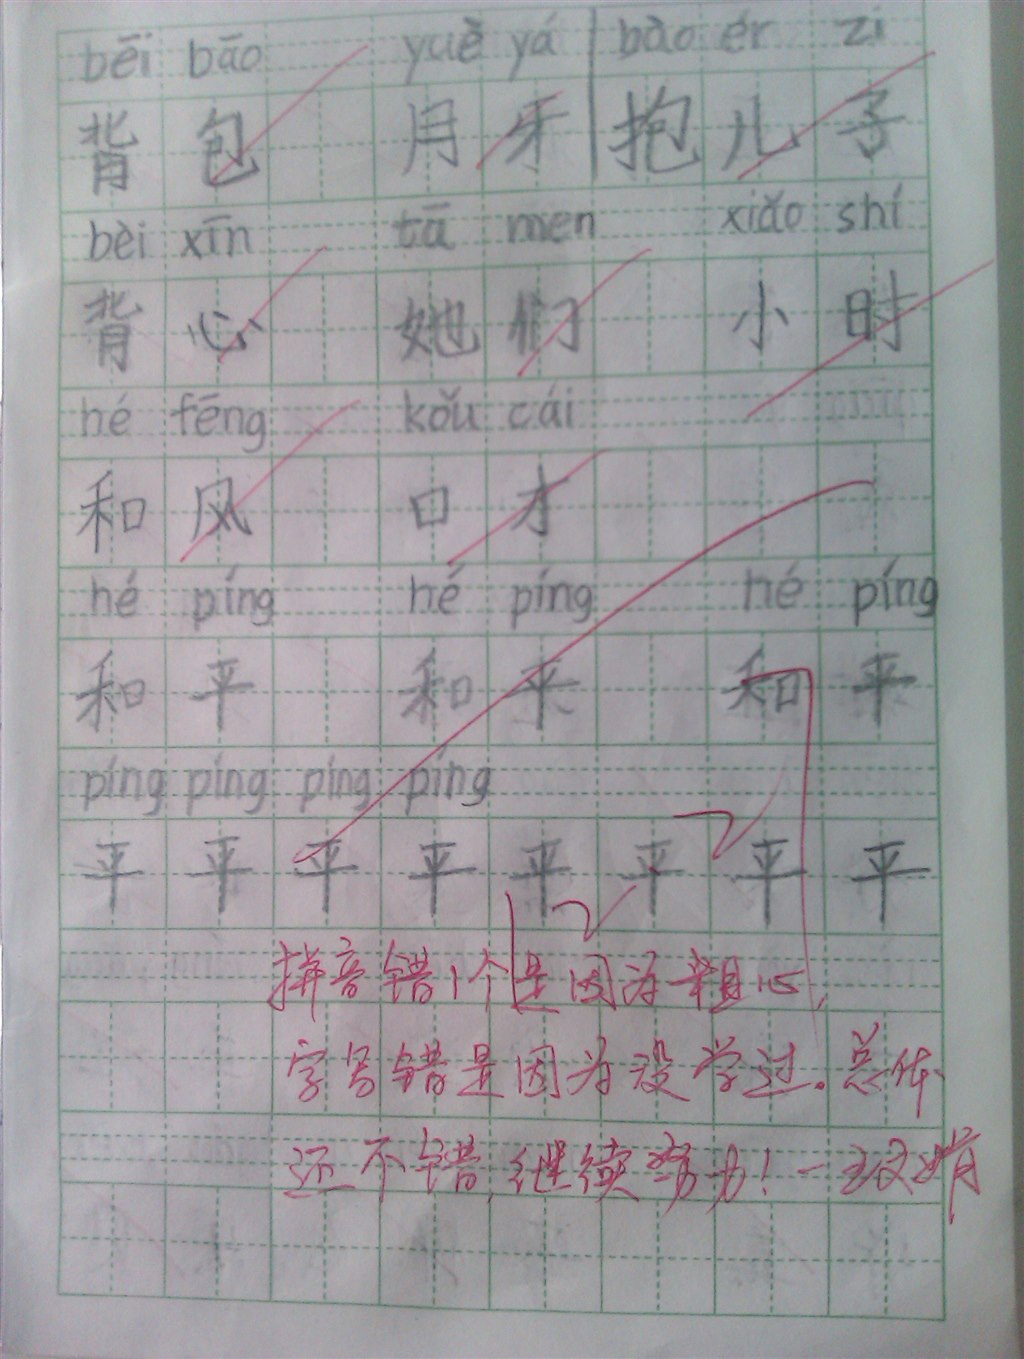 bēi bāo yuè yá bào ér zi
背包 月牙 抱儿子
bèi xīn tā men xiǎo shí
背心 她们 小时
hé fēng kǒu cái
和风 口才
hé píng hé píng hé píng
和平 和平 和平
píng píng píng píng
平平平平平平平平
拼音错1个是因为粗心,
字写错是因为没学过。总体
还不错,继续努力!一